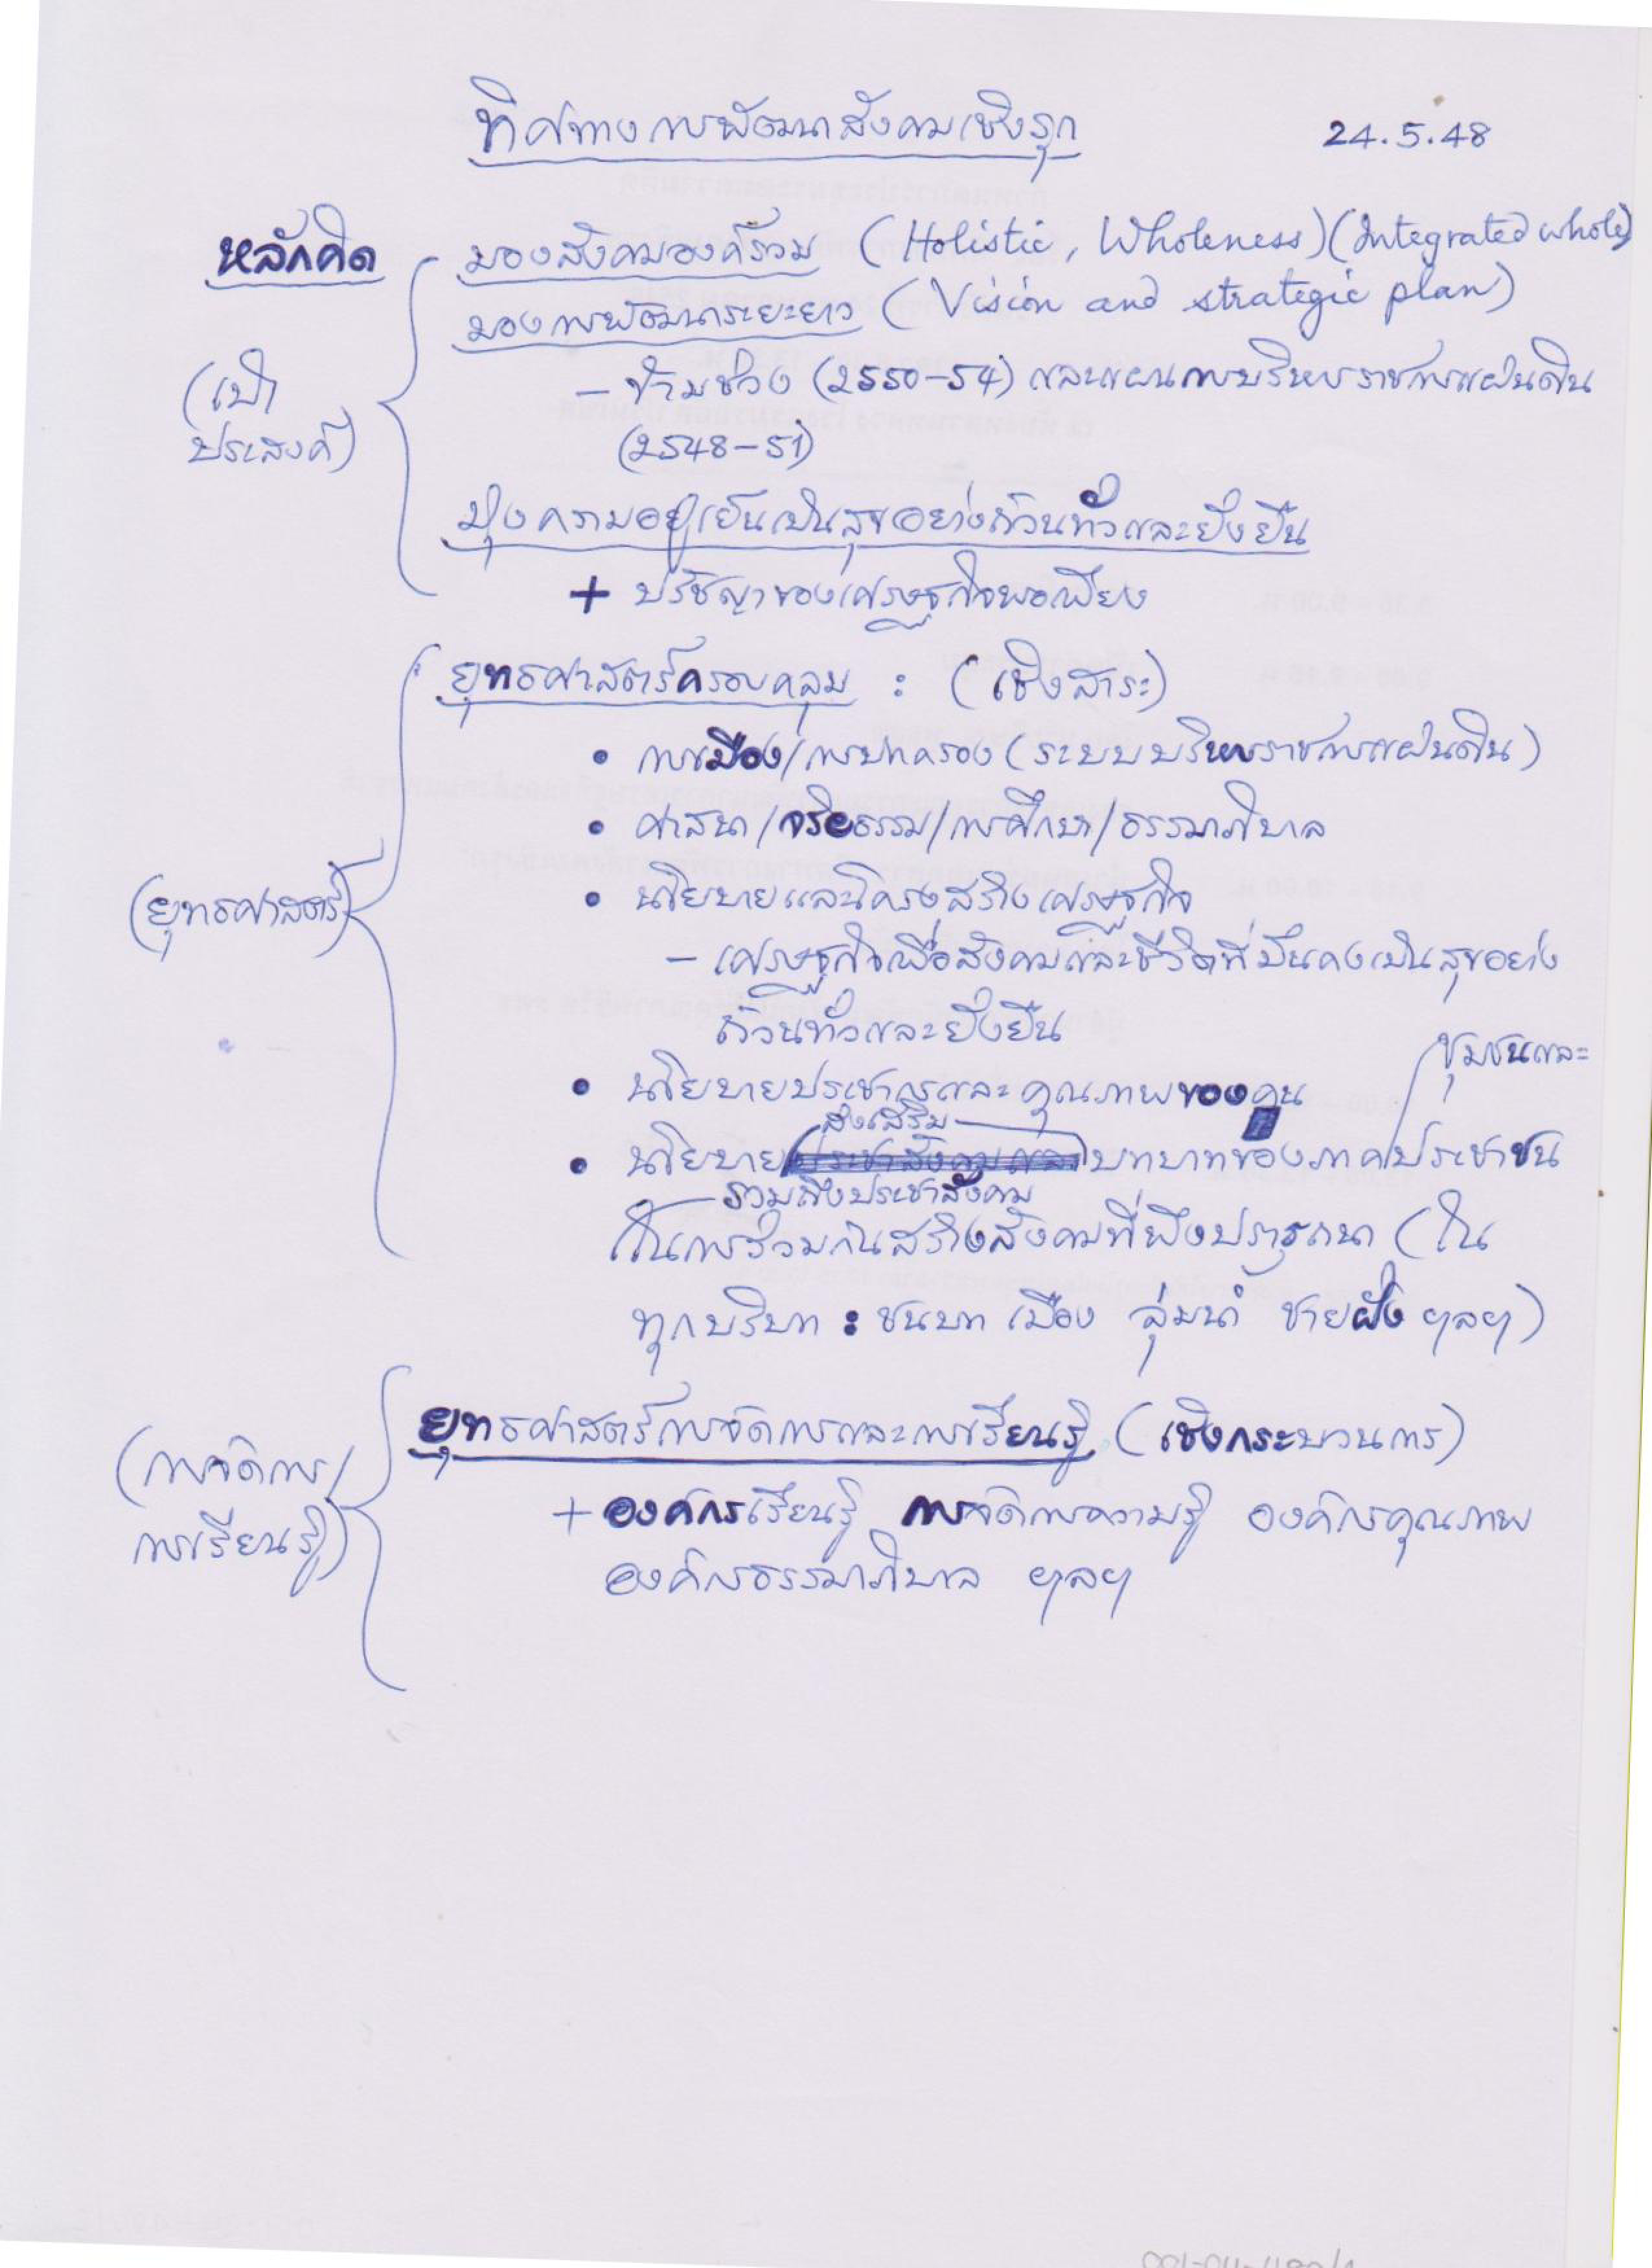 ทิศทางการพัฒนาสังคมเชิงรุก 24.5.48
หลักคิด มองสังคมองค์รวม (Holistic, Wholeness) (Integrated whole)
มองการพัฒนาระยะยาว (Vision and strategic plan)
(เป้า – ข้ามช่วง (2550-54) และแผนการบริหารราชการแผ่นดิน
ประสงค์) (2548-51)
มุ่งความอยู่เย็นเป็นสุขอย่างถ้วนทั่วและยั่งยืน
+ ปรัชญาของเศรษฐกิจพอเพียง
ยุทธศาสตร์ครอบคลุม : (เชิงสาระ)
• การเมือง/การปกครอง (ระบบบริหารราชการแผ่นดิน)
• ศาสนา/จริยธรรม/การศึกษา/ธรรมาภิบาล
(ยุทธศาสตร์) • นโยบายและโครงสร้างเศรษฐกิจ
– เศรษฐกิจเพื่อสังคมและชีวิตที่มั่นคงเป็นสุขอย่าง
ถ้วนทั่วและยั่งยืน
ชุมชนและ
• นโยบายประชากรและคุณภาพของคน
ส่งเสริม
• นโยบาย ประชาสังคมและ บทบาทของภาคประชาชน
รวมถึงประชาสังคม
ในการร่วมกันสร้างสังคมที่พึงปรารถนา (ใน
ทุกบริบท : ชนบท เมือง ลุ่มน้ำ ชายฝั่ง ฯลฯ)
ยุทธศาสตร์การจัดการและการเรียนรู้ (เชิงกระบวนการ)
(การจัดการ/
+ องค์กรเรียนรู้ การจัดการความรู้ องค์กรคุณภาพ
การเรียนรู้)
องค์กรธรรมาภิบาล ฯลฯ